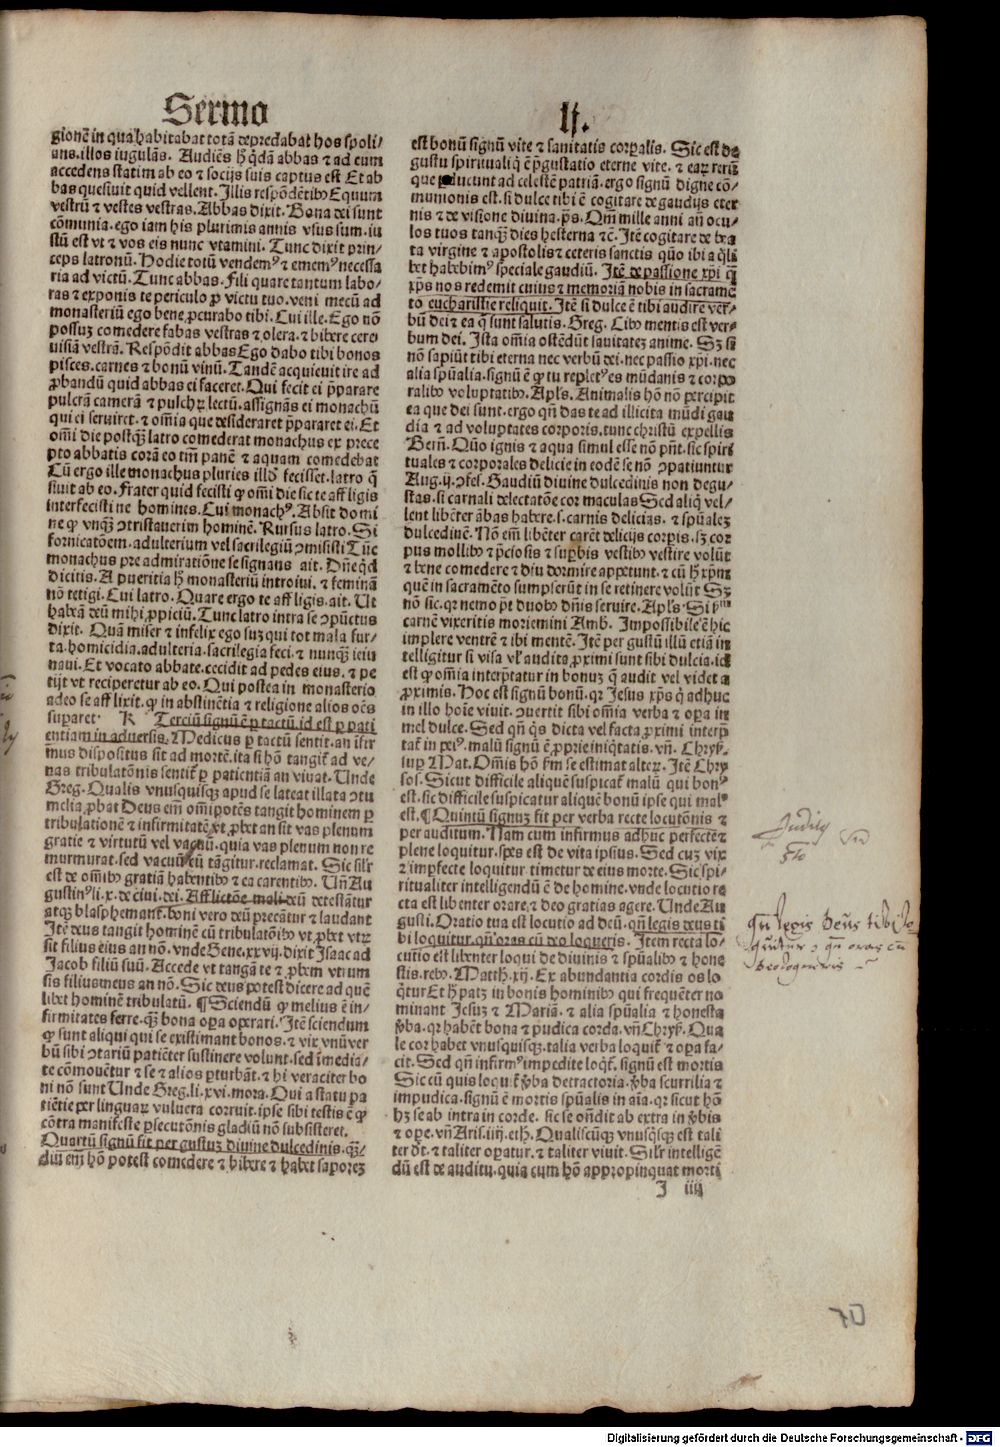 Sermo
lj.
gionē in qua habitabat totā depredabat hos spoli/
ans. illos iugulās. Audiēs hͦ qdā abbas ⁊ ad eum
accedens statim ab eo ⁊ socijs suis captus est Et ab
bas quesiuit quid vellent. Illis respōdētibꝰ Equum
vestrū ⁊ vestes vestras. Abbas dixit. Bona dei sunt
cōmunia. ego iam his plurimis annis vsus sum. iu
stū est vt ⁊ vos eis nunc vtamini. Tunc dixit prin⸗
ceps latronū. Hodie totū vendemꝰ ⁊ ememꝰ necessa
ria ad victū. Tunc abbas. Fili quare tantum labo⸗
ras ⁊ exponis te periculo ꝓ victu tuo. veni mecū ad
monasteriū ego bene ꝓcurabo tibi. Cui ille. Ego nō
possuꝫ comedere fabas vestras ⁊ olera. ⁊ bibere cere
uisiā vestrā. Respōdit abbas Ego dabo tibi bonos
pisces. carnes ⁊ bonū vinū. Tandē acquieuit ire ad
ꝓbandū quid abbas ei faceret. Qui fecit ei p̄parare
pulcrā camerā ⁊ pulchꝝ lectū. assignās ei monachū
qui ei seruiret. ⁊ omīa que desideraret p̄pararet ei. Et
omī die postqꝫ latro comederat monachus ex prece
pto abbatis corā eo tm̄ panē ⁊ aquam comedebat
Cū ergo ille monachus pluries illd̄ fecisset. latro q̄
siuit ab eo. Frater quid fecisti ꝙ omī die sic te affligis
interfecisti ne homines. Cui monachꝰ. Absit domi
ne ꝙ vnqꝫ ↄtristauerim hominē. Rursus latro. Si
fornicatōem. adulterium vel sacrilegiū ↄmisisti Tūc
monachus pre admiratiōne se signans ait. Dn̄e qd̄
dicitis. A pueritia hͦ monasteriū introiui. ⁊ feminā
nō tetigi. Cui latro. Quare ergo te affligis. ait. Ut
habeā deū mihi ꝓpiciū. Tunc latro intra se ↄpūctus
dixit. Quā miser ⁊ infelix ego suꝫ qui tot mala fur/
ta. homicidia. adulteria. sacrilegia feci. ⁊ nunqꝫ ieiu
naui. Et vocato abbate. cecidit ad pedes eius. ⁊ pe
tijt vt reciperetur ab eo. Qui postea in monasterio
adeo se afflixit. ꝙ in abstinētia ⁊ religione alios oēs
suꝑaret. K Terciū signū ē ꝑ tactū id est ꝑ pati
entiam in aduersis. Medicus ꝑ tactū sentit. an īfir
mus dispositus sit ad mortē. ita si hō tangit̄ ad ve/
nas tribulatōnis sentit̄ ꝑ patientiā an viuat. Unde
Greg. Qualis vnusquisqꝫ apud se lateat illata ↄtu
melia ꝓbat Deus em̄ omīpotēs tangit hominem ꝑ
tribulationē ⁊ infirmitatē vt ꝓbet an sit vas plenum
gratie ⁊ virtutū vel vacuū. quia vas plenum non re
murmurat. sed vacuū cū tāgitur. reclamat. Sic silr̄
est de omībꝰ gratiā habentibꝰ ⁊ ea carentibꝰ. Un̄ Au
gustinꝰ li. x. de ciui. dei. Afflictōne mali deū detestātur
atqꝫ blasphemant. boni vero deū precātur ⁊ laudant
Itē deus tangit hominē cū tribulatōibꝰ vt ꝓbet vtꝝ
sit filius eius an nō. vnde Gene. xxvij. dixit Isaac ad
Jacob filiū suū. Accede vt tangā te ⁊ ꝓbem vtrum
sis filius meus an nō. Sic deus potest dicere ad quē
libet hominē tribulatū. ¶ Sciendū ꝙ melius ē in/
firmitates ferre. qꝫ bona oꝑa operari. Itē sciendum
ꝙ sunt aliqui qui se existimant bonos. ⁊ vix vnū ver
bū sibi ↄtrariū patiēter sustinere volunt. sed īmedia/
te cōmouētur ⁊ se ⁊ alios ꝑturbāt. ⁊ hi veraciter bo
ni nō sunt Unde Greg. li. xvi. mora. Qui a statu pa
tiētie per linguaꝝ vulnera corruit. ipse sibi testis ē ꝙ
cōtra manifeste ꝑsecutōnis gladiū nō subsisteret.
Quartū signū fit per gustuꝫ diuine dulcedinis. qꝫ/
diu em̄ hō potest comedere ⁊ bibere ⁊ habet saporeꝫ
est bonū signū vite ⁊ sanitatis corꝑalis. Sic est de
gustu spirituali q̄ ē p̄gustatio eterne vite. ⁊ eaꝝ rerū
que ꝑducunt ad celestē patriā. ergo signū digne cō/
munionis est. si dulce tibi ē cogitare de gaudijs eter
nis ⁊ de visione diuina. ps̄. Qm̄ mille anni an̄ ocu/
los tuos tanqꝫ dies hesterna ⁊c̄. Itē cogitare de bea
ta virgine ⁊ apostolis ⁊ ceteris sanctis quō ibi a q̄li
bet habebimꝰ speciale gaudiū. Itē de passione xp̄i q̄
xp̄s nos redemit cuius ⁊ memoriā nobis in sacramē
to eucharistie reliquit. Itē si dulce ē tibi audire ver/
bū dei ⁊ ea q̄ sunt salutis. Greg. Cibꝰ mentis est ver⸗
bum dei. Ista omīa ostēdūt sanitateꝫ anime. Sꝫ si
nō sapiūt tibi eterna nec verbū dei. nec passio xp̄i. nec
alia spūalia. signū ē ꝙ tu repletꝰ es mūdanis ⁊ corpo
ralibꝰ voluptatibꝰ. Apl̄s. Animalis hō nō percipit
ea que dei sunt. ergo qn̄ das te ad illicita mūdi gau
dia ⁊ ad voluptates corporis. tunc christū expellis
Bern̄. Quō ignis ⁊ aqua simul esse nō pn̄t. sic spiri
tuales ⁊ corporales delicie in eodē se nō ↄpatiuntur
Aug. ij. ↄfes. Gaudiū diuine dulcedinis non degu/
stas. si carnali delectatōe cor maculas Sed aliq̄ vel/
lent libēter ābas habere. s. carnis delicias. ⁊ spūaleꝫ
dulcedinē. Nō em̄ libēter carēt delicijs corꝑis. sꝫ cor
pus mollibꝰ ⁊ p̄ciosis ⁊ suꝑbis vestibꝰ vestire volūt
⁊ bene comedere ⁊ diu dormire appetunt. ⁊ cū hͦ xp̄m
quē in sacramēto sumpserūt in se retinere volūt Sꝫ
nō sic. qꝛ nemo pōt duobꝰ dn̄is seruire. Apl̄s. Si ẜm
carnē vixeritis moriemini Amb̄. Impossibile ē hic
implere ventrē ⁊ ibi mentē. Itē per gustū illū etiā in
telligitur si visa vl̄ audita ꝓximi sunt sibi dulcia. id
est ꝙ omīa interp̄tatur in bonuꝫ q̄ audit vel videt a
ꝓximis. Hoc est signū bonū. qꝛ Jesus xp̄s q̄ adhuc
in illo hoīe viuit. ↄuertit sibi omīa verba ⁊ oꝑa in
mel dulce. Sed qn̄ q̄s dicta vel facta ꝓximi interp̄
tat̄ in peiꝰ. malū signū ē ꝓprie iniq̄tatis. vn̄. Chrys̄.
suꝑ Mat. Omīs hō ẜm se estimat alteꝝ. Itē Chry
sos. Sicut difficile aliquē suspicat̄ malū qui bonꝰ
est. sic difficile suspicatur aliquē bonū ipse qui malꝰ
est. ¶ Quintū signuꝫ fit per verba recte locutōnis ⁊
per auditum. Nam cum infirmus adhuc perfecte ⁊
plene loquitur. spes est de vita ipsius. Sed cuꝫ vix
⁊ imꝑfecte loquitur timetur de eius morte. Sic spi/
ritualiter intelligendū ē de homine. vnde locutio re
cta est libenter orare. ⁊ deo gratias agere. Unde Au
gusti. Oratio tua est locutio ad deū. qn̄ legis deus ti
bi loquitur. qn̄ oras cū deo loqueris. Item recta lo/
cutio est libenter loqui de diuinis ⁊ spūalibꝰ ⁊ hone
stis. rebꝰ. Matth. xij. Ex abundantia cordis os lo
q̄tur Et hͦ patꝫ in bonis hominibꝰ qui frequēter no
minant Jesuꝫ ⁊ Mariā. ⁊ alia spūalia ⁊ honesta
ꝟba. qꝛ habēt bona ⁊ pudica corda. vn̄ Chrys̄. Qua
le cor habet vnusquisqꝫ. talia verba loquit̄ ⁊ oꝑa fa/
cit. Sed qn̄ infirmꝰ impedite loq̄t̄. signū est mortis
Sic cū quis loquit̄ ꝟba detractoria. ꝟba scurrilia ⁊
impudica. signū ē mortis spūalis in aīa. qꝛ sicut hō
hꝫ se ab intra in corde. sic se on̄dit ab extra in ꝟbis
⁊ oꝑe. vn̄ Aris. iiij. eth. Qualiscūqꝫ vnusq̄sqꝫ est tali
ter dt̄. ⁊ taliter oꝑatur. ⁊ taliter viuit. Silr̄ intelligē
dū est de auditu. quia cum hō appropinquat morti
J iiij
qn̄ legis Deus tibi lo
quitur, qn̄ oras cū
Deo loqueris
Digitalisierung gefördert durch die Deutsche Forschungsgemeinschaft - DFG